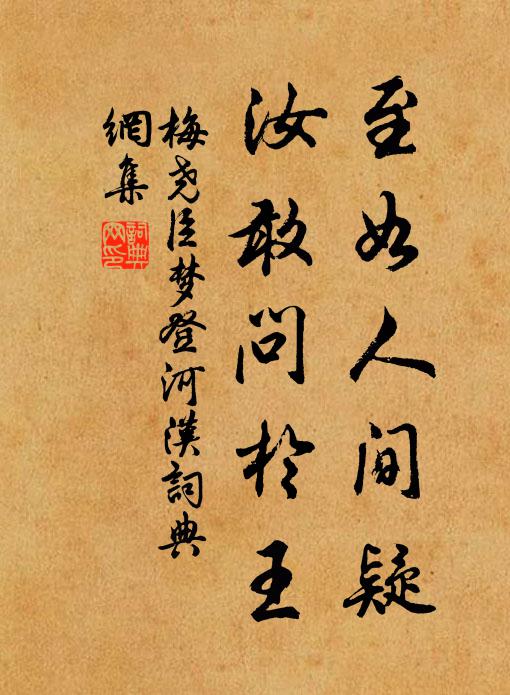 至如人间疑
汝敢问於王
梅尧臣梦登河汉词典
網集
詞典
网印